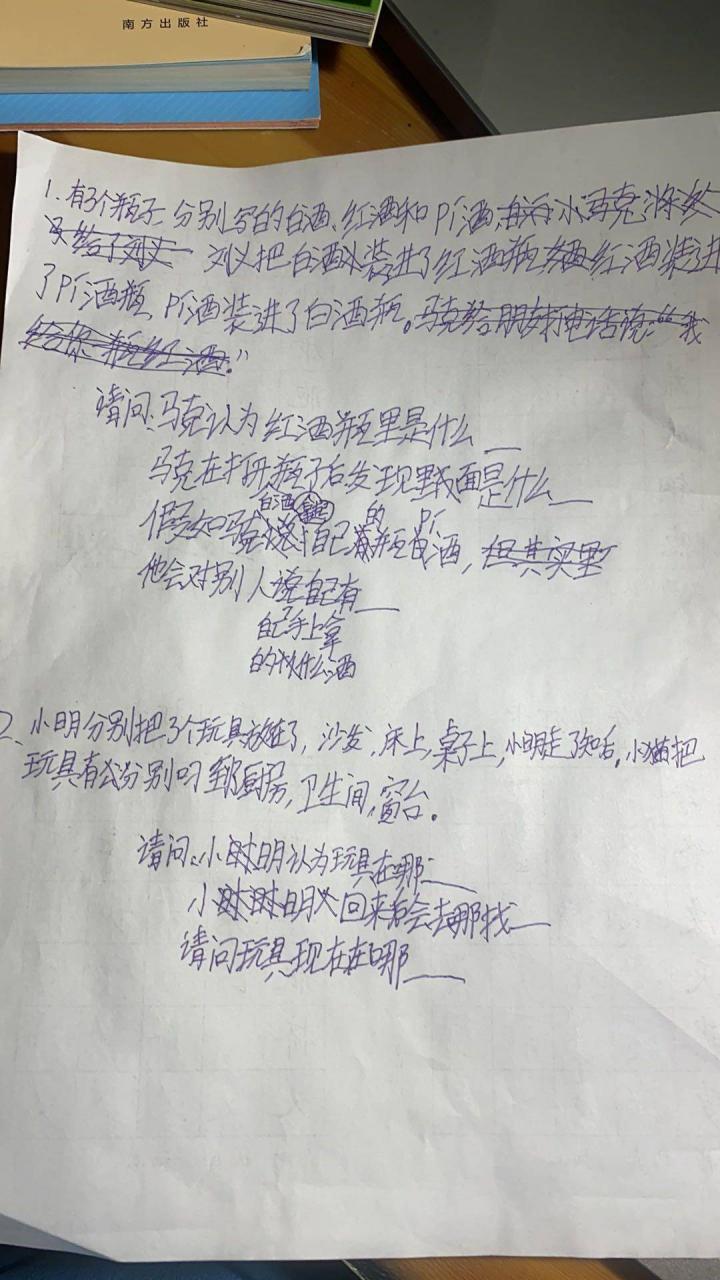 南方出版社
1. 有3个瓶子 分别写的白酒、红酒和pi酒, 小马克
刘义把白酒装进了红酒瓶 红酒装进
了pi酒瓶, pi酒装进了白酒瓶。马克给朋友打电话说:"我
给你一瓶红酒."
请问:马克认为红酒瓶里是什么
马克在打开瓶子后发现里面是什么
白酒 的 pi
假如马克 自己 瓶 酒,但其实里
他会对别人说自己有
自己手上拿
的 什么酒
2、小明分别把3个玩具放在了,沙发,床上,桌子上,小明走了知后,小猫把
玩具 分别叼到厨房,卫生间,窗台。
请问、小明认为玩具在哪
小明 回来后会去那找
请问玩具现在在哪